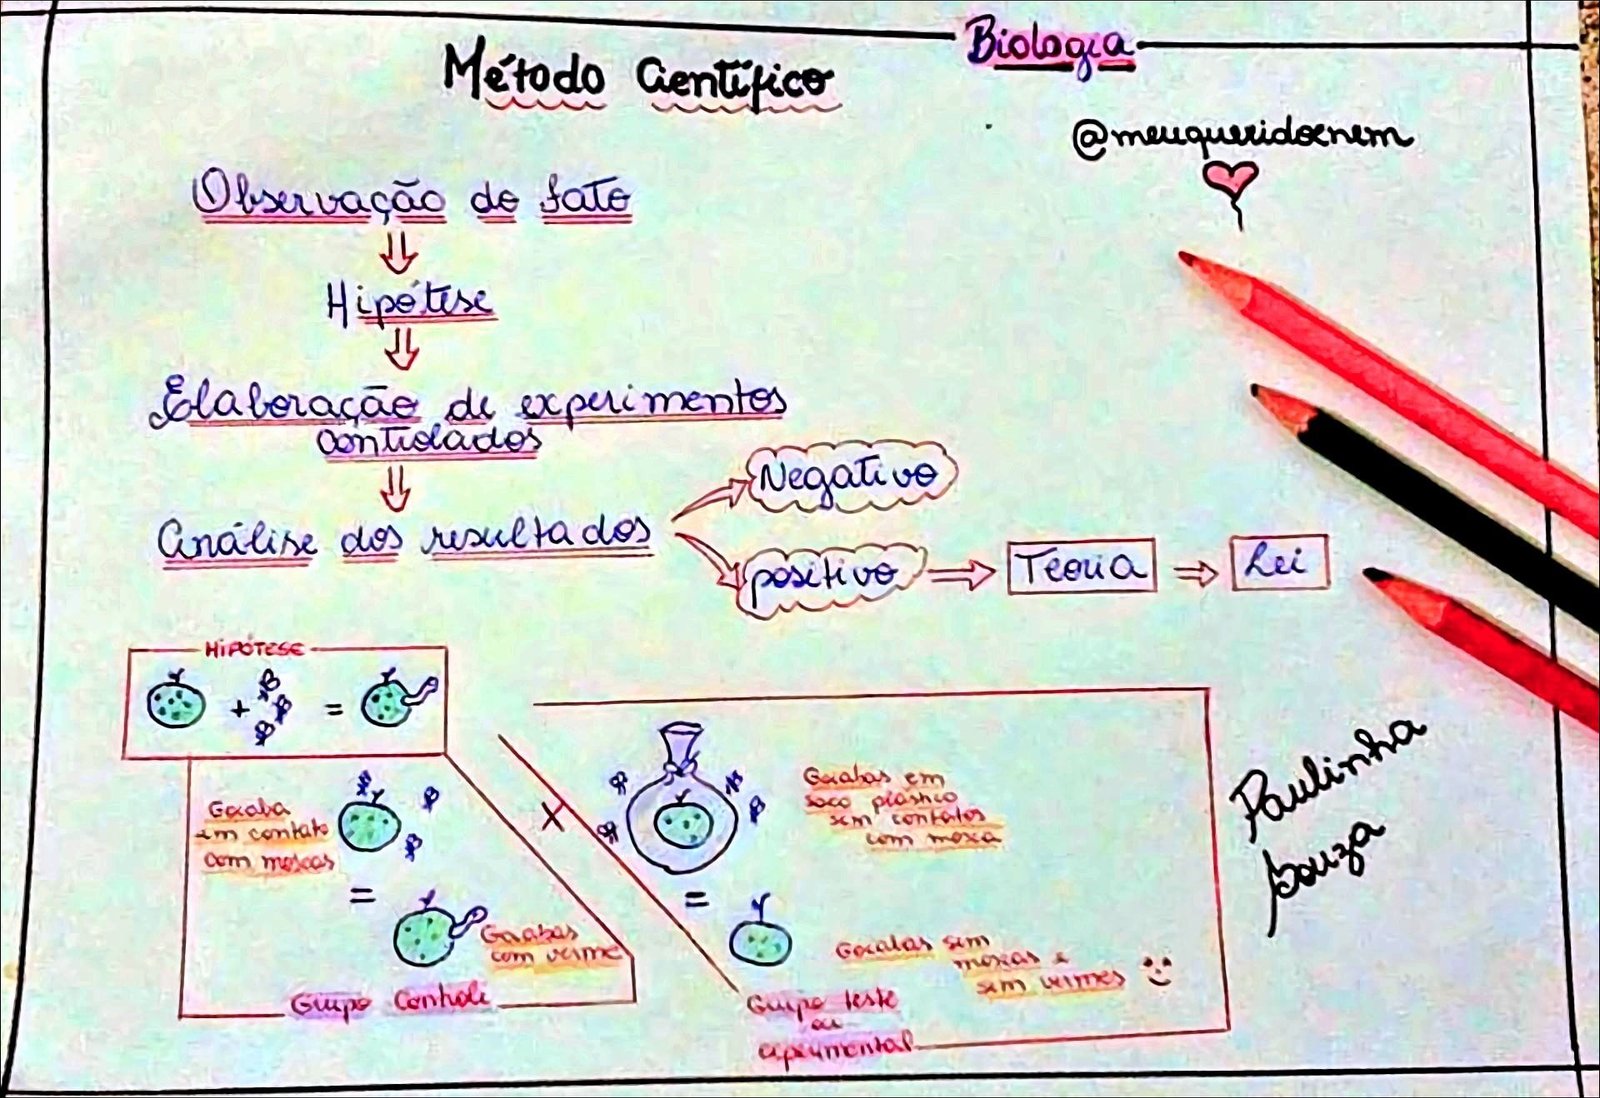 Biologia
Método Científico
@meuqueridoenem
Observação do fato
Hipótese
Elaboração de experimentos
controlados
Análise dos resultados
Negativo
positivo
Teoria
Lei
HIPÓTESE
+
=
Goiaba
em contato
com moscas
=
Goiabas
com verme
Grupo Controle
X
Goiabas em
saco plástico
sem contatos
com mosca
=
Goiabas sem
moscas e
sem vermes
Grupo teste
ou
experimental
Paulinha
Souza